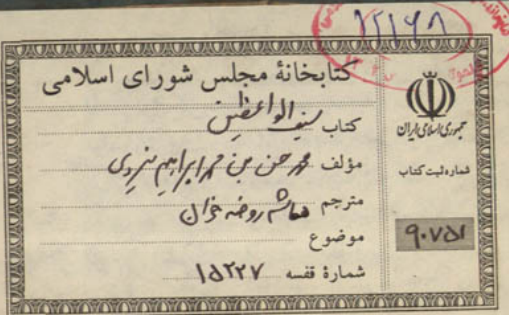 ۱۲۱۶۸
کتابخانهٔ مجلس شورای اسلامی
کتاب سیف الواعظین
مؤلف محمد حسن بن محمد ابراهیم یزدی
مترجم
موضوع
شمارهٔ قفسه ۱۵۲۲۷
جمهوری اسلامی ایران
شماره ثبت کتاب
۹۰۷۵۱